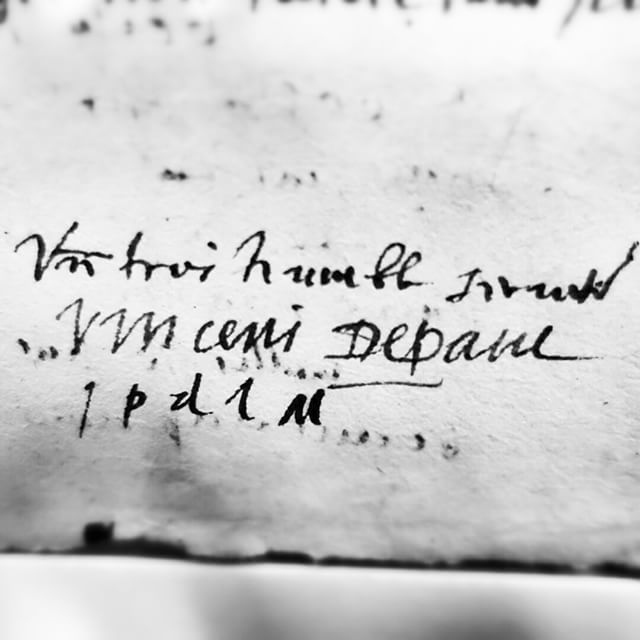 Vr̃e tres humble servit
Vincent Depaul
i p d l M